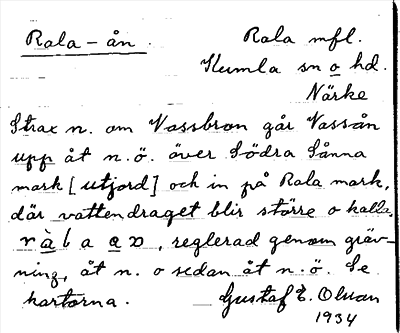 Rala-ån.
Rala mfl.
Kumla sn o hd.
Närke
Strax n. om Vassbron går Vassån
upp åt n.ö. över Södra Sånna
mark [utjord] och in på Rala mark,
där vattendraget blir större o kallas
reglerad genom gräv-
ning, åt n. o sedan åt n.ö. Se
kartorna.
Gustaf E. Olsson
1934